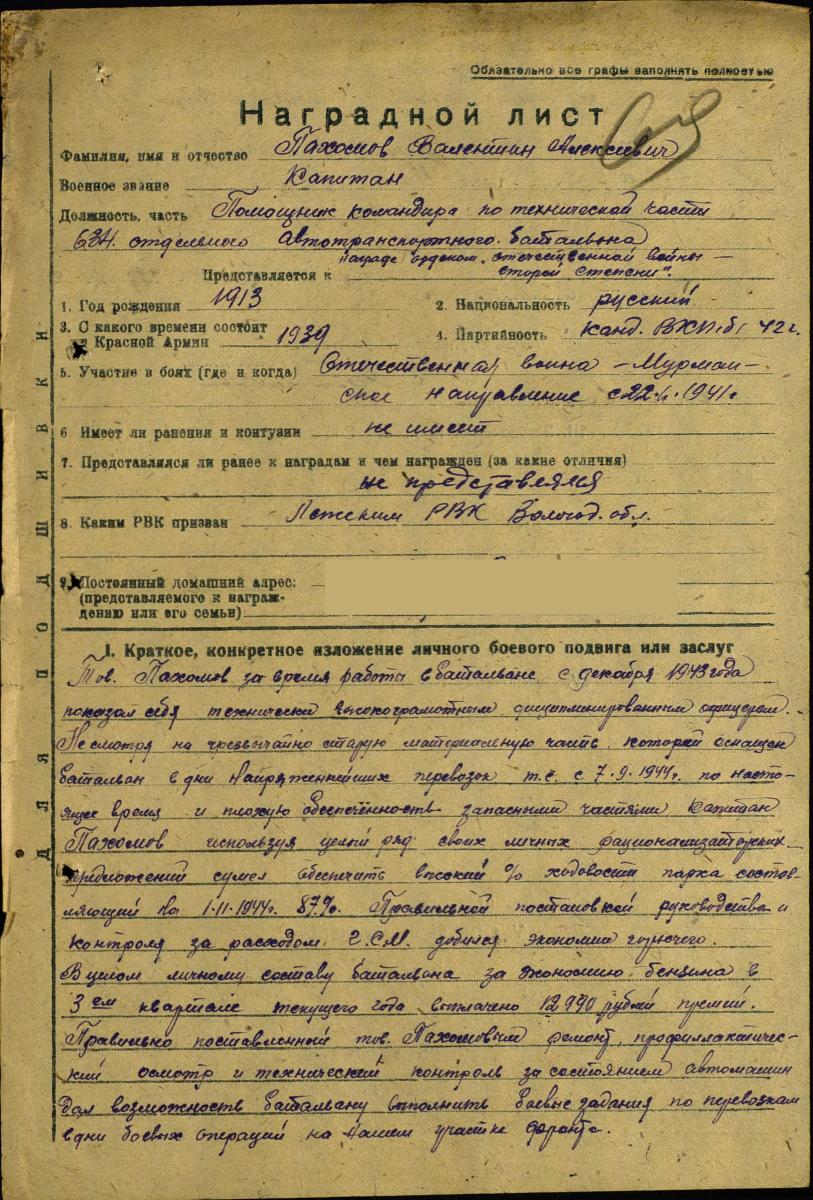 Обязательно все графы заполнять полностью
Наградной лист
Фамилия, имя и отчество Пахомов Валентин Алексеевич
Военное звание Капитан
Должность, часть Помощник командира по технической части
634. отдельного автотранспортного батальона
Представляется к награде "орденом отечественной войны —
второй степени".
1. Год рождения 1913
2. Национальность русский
3. С какого времени состоит
в Красной Армии 1939
4. Партийность канд. ВКП(б) 42 г.
5. Участие в боях (где и когда) Отечественная война — Мурман-
ское направление с 22.6.1941г.
6 Имеет ли ранения и контузии не имеет
7. Представлялся ли ранее к наградам и чем награжден (за какие отличия)
не представлялся
8. Каким РВК призван РВК Вологод. обл.
9. Постоянный домашний адрес:
(представляемого к награж-
дению или его семьи)
ДЛЯ ПОДШИВКИ
I. Краткое, конкретное изложение личного боевого подвига или заслуг
Тов. Пахомов за время работы в батальване с декабря 1943 года
показал себя технически высокограмотным дисциплинированным офицером.
Несмотря на чрезвычайно старую материальную часть, которой оснащен
батальван в дни напряженнейших перевозок т.е. с 7.9.1944г. по насто-
ящее время и плохую обеспеченность запасными частями капитан
Пахомов используя целый ряд своих личных рационализаторских
предложений сумел обеспечить высокий % ходовости парка состав-
ляющий на 1.11.1944г. 87%. Правильной постановкой руководства и
контроля за расходом Г.С.М. добился экономии горючего.
В целом личному составу батальвана за экономию бензина в
3ем квартале текущего года выплачено 12990 рублей премий.
Правильно поставленной тов. Пахомовым ремонт, профиллактичес-
кий осмотр и технический контроль за состоянием автомашин
дал возможность батальвану выполнить боевые задания по перевозкам
в дни боевых операций на нашем участке фронта.